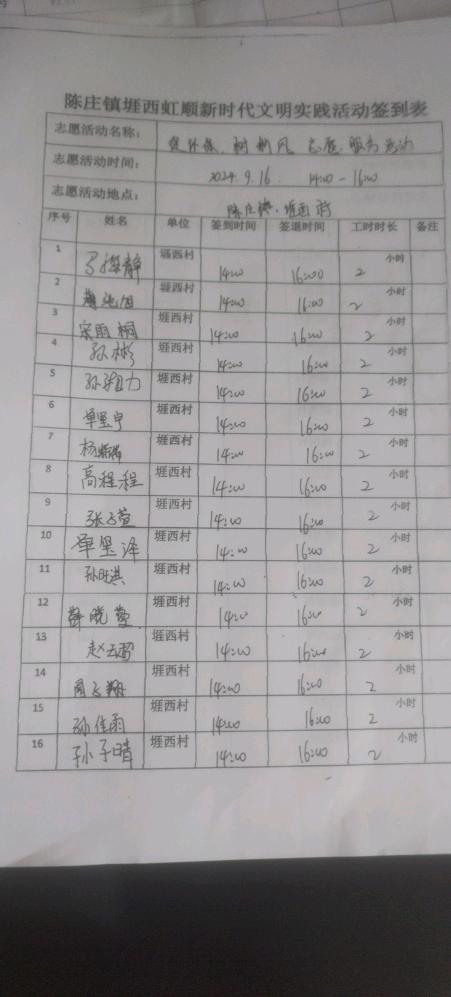 陈庄镇堐西虹顺新时代文明实践活动签到表
志愿活动名称： 促环保、树新风 志愿服务活动
志愿活动时间： 2024.9.16. 14:00-16:00
志愿活动地点： 陈庄镇·堐西村
序号 姓名 单位 签到时间 签退时间 工时时长 备注
1 静 堐西村 14:00 16:00 2 小时
2 堐西村 14:00 16:00 2 小时
3 宋雨桐 堐西村 14:00 16:00 2 小时
4 孙彬 堐西村 14:00 16:00 2 小时
5 孙 力 堐西村 14:00 16:00 2 小时
6 单 堐西村 14:00 16:00 2 小时
7 杨 堐西村 14:00 16:00 2 小时
8 高程程 堐西村 14:00 16:00 2 小时
9 张子萱 堐西村 14:00 16:00 2 小时
10 单昱泽 堐西村 14:00 16:00 2 小时
11 孙旺淇 堐西村 14:00 16:00 2 小时
12 薛晓莹 堐西村 14:00 16:00 2 小时
13 赵云 堐西村 14:00 16:00 2 小时
14 周子翔 堐西村 14:00 16:00 2 小时
15 孙佳雨 堐西村 14:00 16:00 2 小时
16 孙子晴 堐西村 14:00 16:00 2 小时